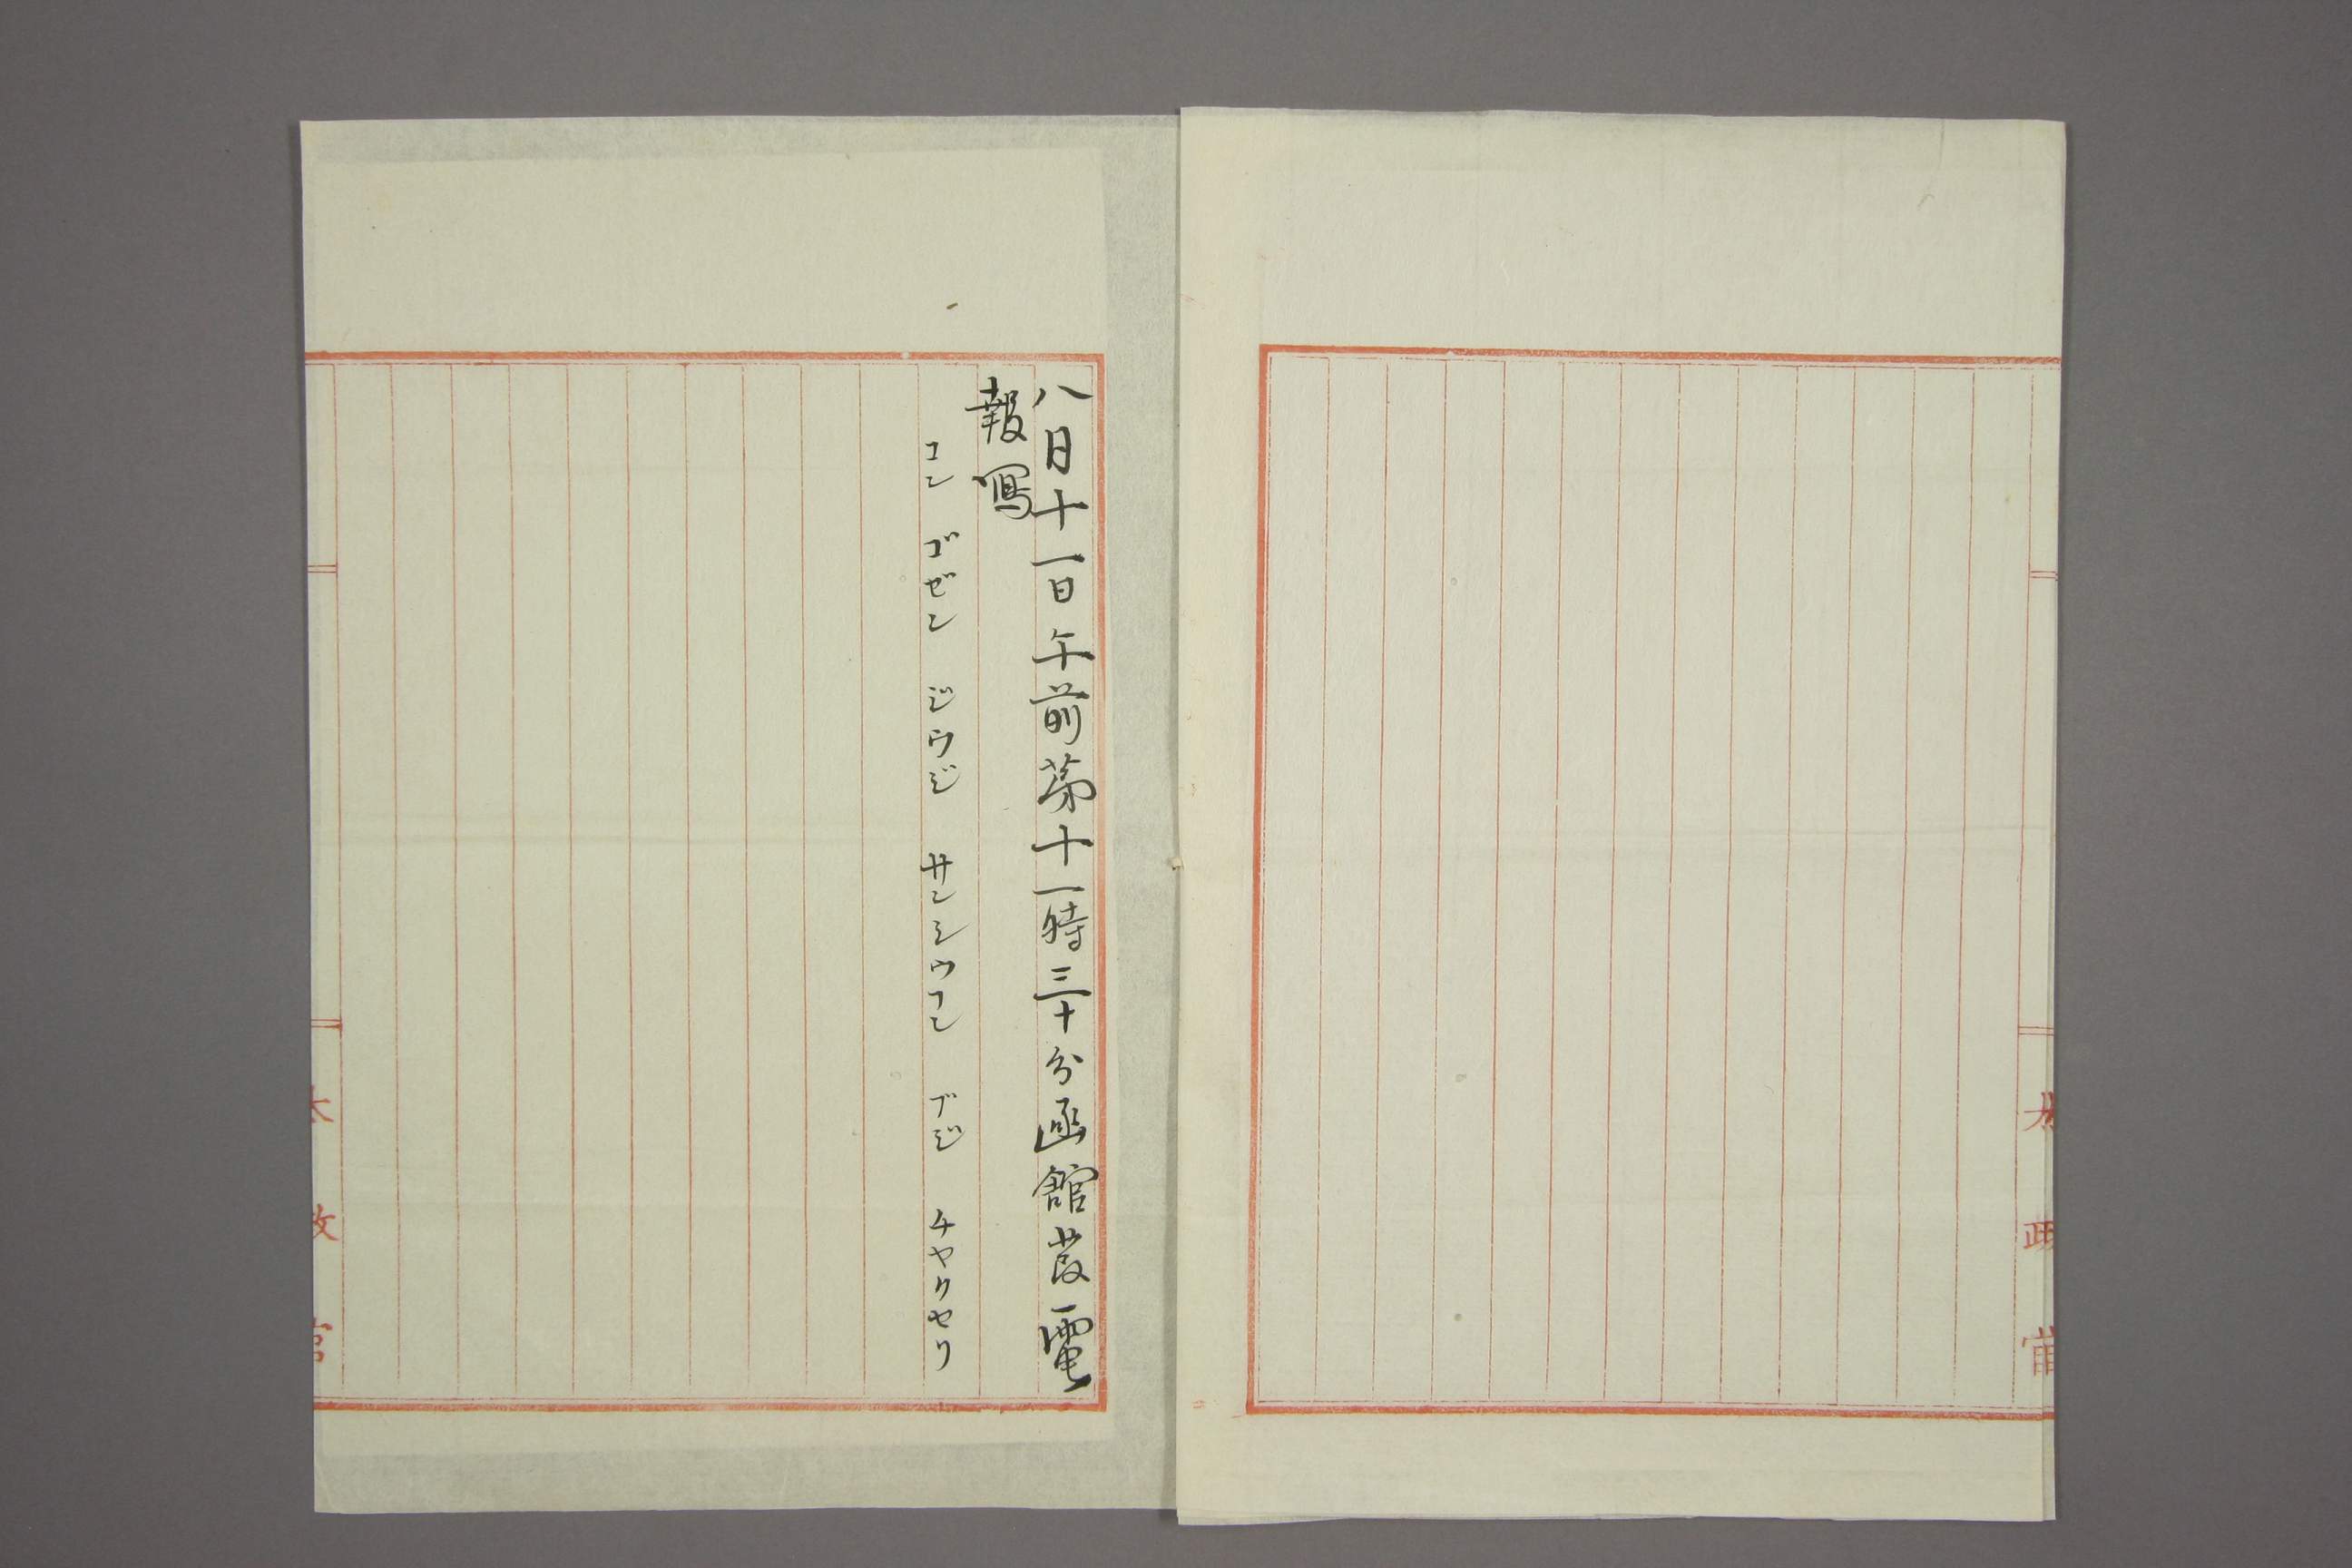 太政官
八月十一日午前苐十一時三十分函館發電
報寫
コン ゴゼン ジウジ サンシウフン ブジ チヤクセリ
太政官